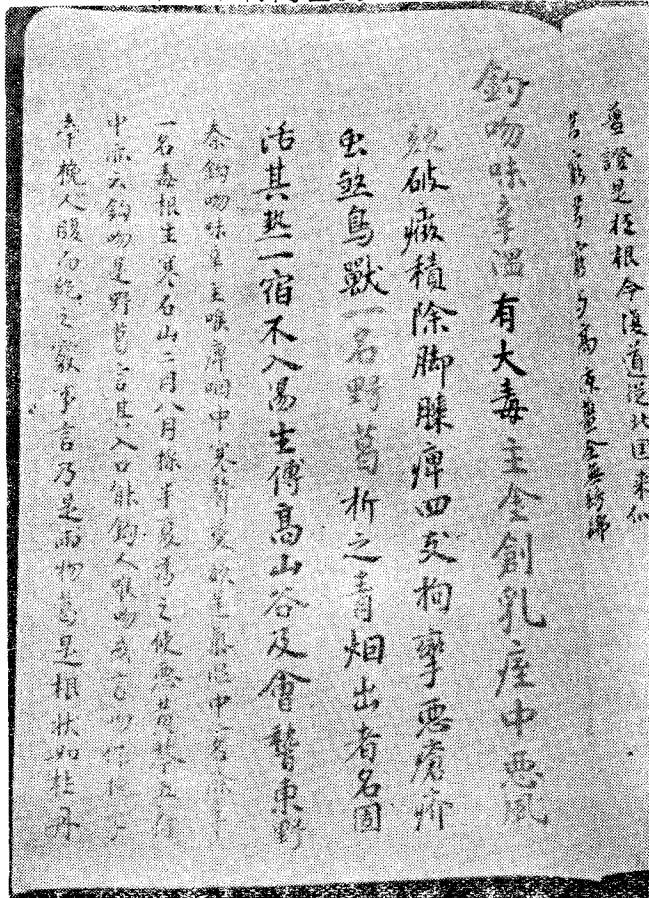 證是桂根今復道從北国来似
芎窮芎窮与高凉薑全無彷彿
鈎吻味辛温有大毒主金創乳痓中悪風
欬破癥積除脚膝痺四支拘攣悪瘡疥
虫煞鳥獸一名野葛折之青烟出者名固
活其熱一宿不入湯生傅高山谷及會稽東野
秦鈎吻味辛主喉痺咽中塞聲變欬逆氣温中
一名毒根生寒石山二月八月採半夏為之使悪黄芩五符
中亦云鈎吻是野葛言其入口能鈎人喉吻或言吻作挽
牽挽人腹而絶之覈事言乃是兩物葛是根状如牡丹